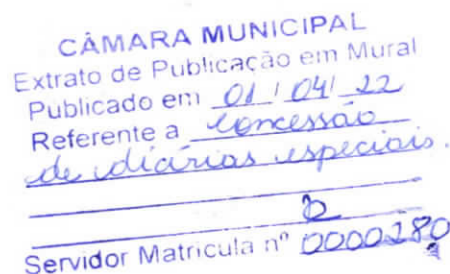 CÂMARA MUNICIPAL
Extrato de Publicação em Mural
Publicado em 01 / 04 / 22
Referente a concessão
de diárias especiais.
Servidor Matricula nº 0000280